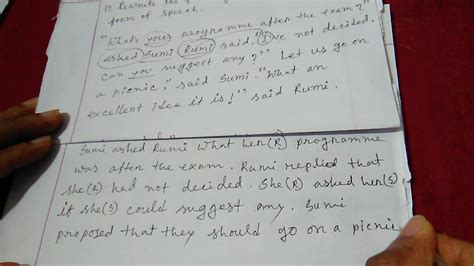 12. Rewrite the
form of speech.
"What's your programme after the exam?"
asked Sumi. Rumi said, "I've not decided.
Can you suggest any?" "Let us go on
a picnic," said Sumi. "What an
excellent idea it is!" said Rumi.
Sumi asked Rumi what her(R) programme
was after the exam. Rumi replied that
she(R) had not decided. She(R) asked her(S)
if she(S) could suggest any. Sumi
proposed that they should go on a picnic